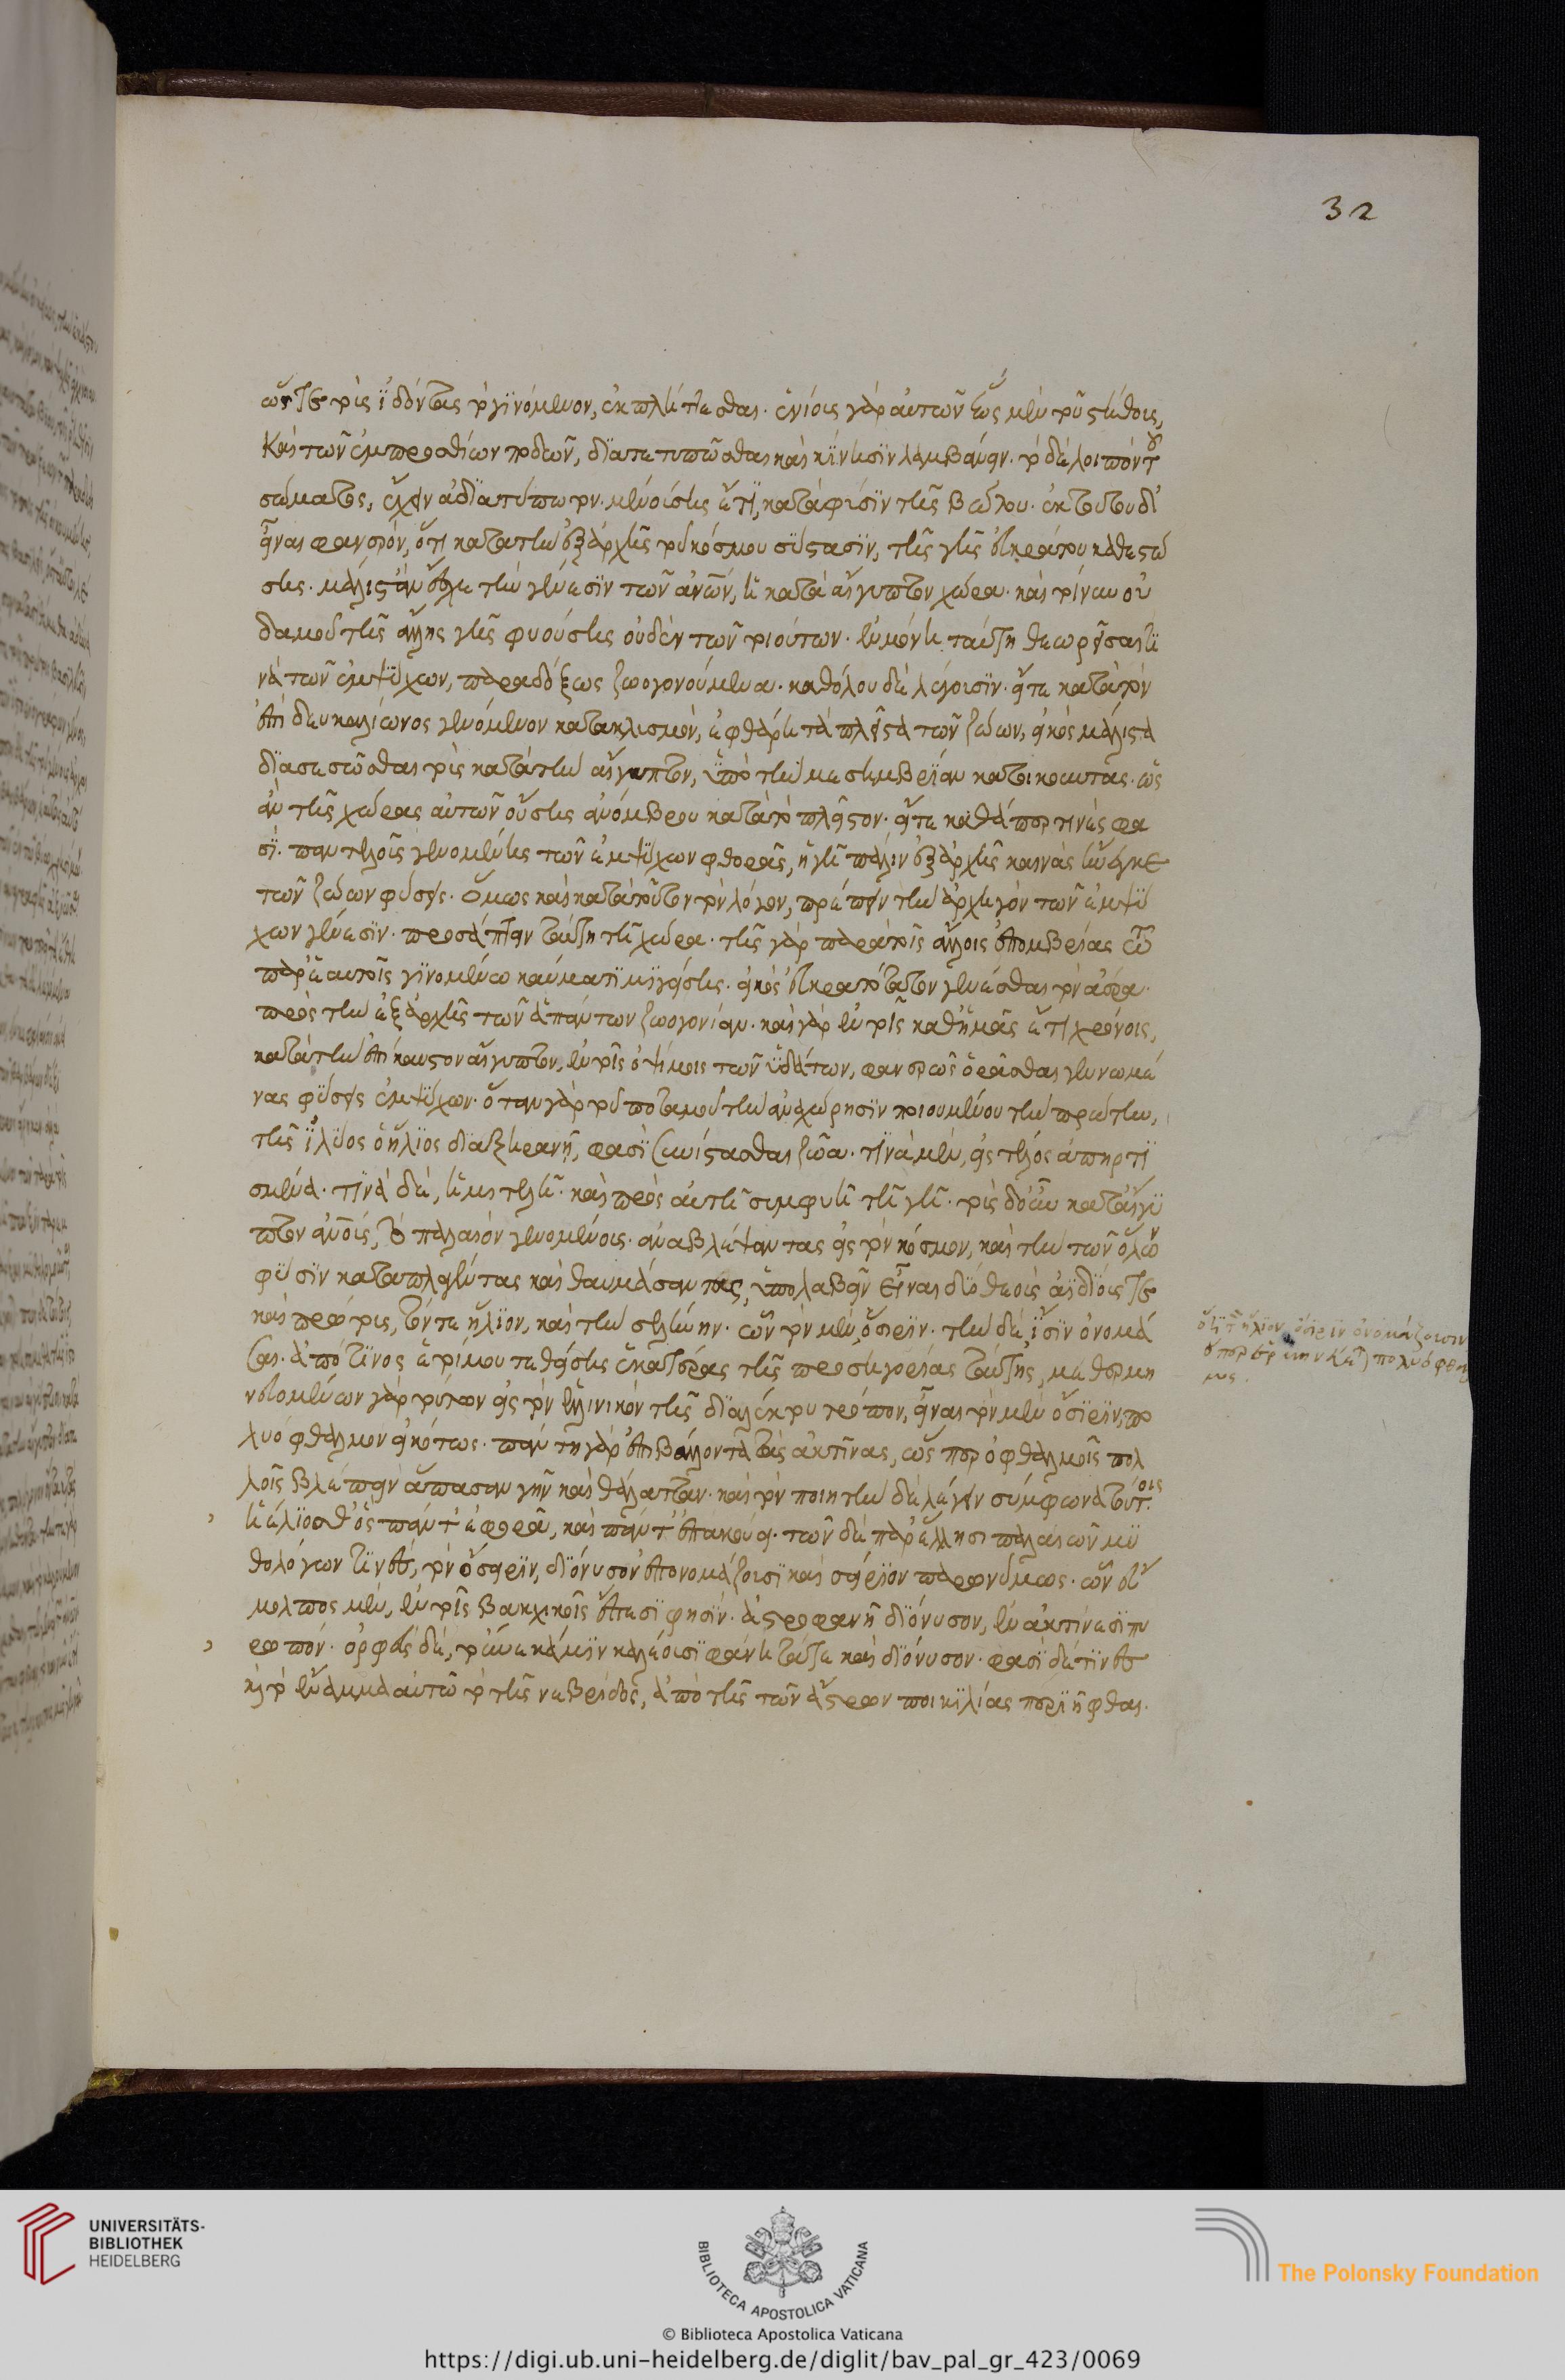 32
ὥστε τοὺς ἰδόντας τὸ γινόμενον, ἐκπλήττεσθαι. ἐνίοις γὰρ αὐτῶν ἕως μὲν τοῦ στήθους,
καὶ τῶν ἐμπροσθίων ποδῶν, διατετυπῶσθαι καὶ κίνησιν λαμβάνειν. τὸ δὲ λοιπὸν τοῦ
σώματος, ἔχειν ἀδιατύπωτον. μενούσης ἔτι, κατὰ φύσιν τῆς βώλου. ἐκ τούτου δ'
εἶναι φανερὸν, ὅτι κατὰ τὴν ἐξ ἀρχῆς τοῦ κόσμου σύστασιν, τῆς γῆς εὐκράτου καθεστώ
σης. μάλιστ' ἂν ἔσχε τὴν γένεσιν τῶν ἀνῶν, ἡ κατὰ αἴγυπτον χώρα. καὶ τοίνυν οὐ
δαμοῦ τῆς ἄλλης γῆς φυούσης οὐδὲν τῶν τοιούτων. ἐν μόνῃ ταύτῃ θεωρεῖσθαί τι
νὰ τῶν ἐμψύχων, παραδόξως ζωογονούμενα. καθόλου δὲ λέγουσιν. εἴτε κατὰ τὸν
ἐπὶ δευκαλίωνος γενόμενον κατακλυσμὸν, ἐφθάρη τὰ πλεῖστα τῶν ζώων, εἰκὸς μάλιστα
διασεσῶσθαι τοὺς κατὰ τὴν αἴγυπτον, ὑπὸ τὴν μεσημβρίαν κατοικοῦντας. ὡς
ἂν τῆς χώρας αὐτῶν οὔσης ἀνόμβρου κατὰ τὸ πλεῖστον. εἴτε καθάπερ τινές φα
σι. παντελοῦς γενομένης τῶν ἐμψύχων φθορᾶς, ἡ γῆ πάλιν ἐξ ἀρχῆς καινὰς ἤνεγκε
τῶν ζώων φύσεις. ὅμως καὶ κατὰ τοῦτον τὸν λόγον, πρέπειν τὴν ἀρχηγὸν τῶν ἐμψύ
χων γένεσιν. προσάπτειν ταύτῃ τῇ χώρα. τῆς γὰρ παρὰ τοῖς ἄλλοις ἐπομβρίας τῶ
παρ' ἑαυτοῖς γινομένω καύματι μιγείσης. εἰκὸς εὐκρατότατον γενέσθαι τὸν ἀέρα.
πρὸς τὴν ἐξ ἀρχῆς τῶν ἁπάντων ζωογονίαν. καὶ γὰρ ἐν τοῖς καθ' ἡμᾶς ἔτι χρόνοις,
κατὰ τὴν ἐπίκαυστον αἴγυπτον, ἐν τοῖς ὀψίμοις τῶν ὑδάτων, φανερῶς ὁρᾶσθαι γεννωμέ
νας φύσεις ἐμψύχων. ὅταν γὰρ τοῦ ποταμοῦ τὴν ἀναχώρησιν ποιουμένου τὴν πρώτην,
τῆς ἰλύος ὁ ἥλιος διαξηρανῆ, φασὶ συνίστασθαι ζῶα. τινὰ μὲν, εἰς τέλος ἀπηρτι
σμένα. τινὰ δὲ, ἡμιτελῆ. καὶ πρὸς αὐτῆ συμφυῆ τῆ γῆ. τοὺς δ' οὖν κατ' αἴγυ
πτον ἀνοὺς, τὸ παλαιὸν γενομένους. ἀναβλέψαντας εἰς τὸν κόσμον, καὶ τὴν τῶν ὅλων
φύσιν καταπλαγέντας καὶ θαυμάσαντας, ὑπολαβεῖν εἶναι δύο θεοὺς ἀϊδίους τε
καὶ πρώτους, τόν τε ἥλιον, καὶ τὴν σελήνην. ὧν τὸν μὲν, ὄσιριν. τὴν δὲ, ἶσιν ὀνομά
σαι. ἀπό τινος ἐτύμου τεθείσης ἑκατέρας τῆς προσηγορίας ταύτης, μεθερμη
νευομένων γὰρ τούτων εἰς τὸν ἑλληνικὸν τῆς διαλέκτου τρόπον, εἶναι τὸν μὲν ὄσιριν, πο
λυόφθαλμον εἰκότως. πάντη γὰρ ἐπιβάλλοντα τὰς ἀκτῖνας, ὥσπερ ὀφθαλμοῖς πολ
λοῖς βλέπειν ἅπασαν γῆν καὶ θάλατταν. καὶ τὸν ποιητὴν δὲ λέγειν σύμφωνα τούτοις.
ἠέλιος θ' ὃς πάντ' ἐφορᾶ, καὶ πάντ' ἐπακούει. τῶν δὲ παρ' ἕλλησι παλαιῶν μυ
θολόγων τινὲς, τὸν ὄσιριν, διόνυσον ἐπονομάζουσι καὶ σείριον παρωνύμως. ὧν εὔ
μολπος μὲν, ἐν τοῖς βακχικοῖς ἔπεσί φησιν. ἀστροφανῆ διόνυσον, ἐν ἀκτίνεσι πυ
ρωπόν. ὀρφεὺς δὲ, τοὔνεκά μιν καλέουσι φάνητά τε καὶ διόνυσον. φασὶ δέ τινες
καὶ τὸ ἔναμμα αὐτῶ τὸ τῆς νεβρίδος, ἀπὸ τῆς τῶν ἄστρων ποικιλίας περιῆφθαι.
ὅτι τὸν ἥλιον, ὄσιριν ὀνομάζουσιν
ὅπερ ἑρμηνεύεται πολυόφθαλ
μος.
UNIVERSITÄTS-
BIBLIOTHEK
HEIDELBERG
BIBLIOTECA APOSTOLICA VATICANA
The Polonsky Foundation
© Biblioteca Apostolica Vaticana
https://digi.ub.uni-heidelberg.de/diglit/bav_pal_gr_423/0069